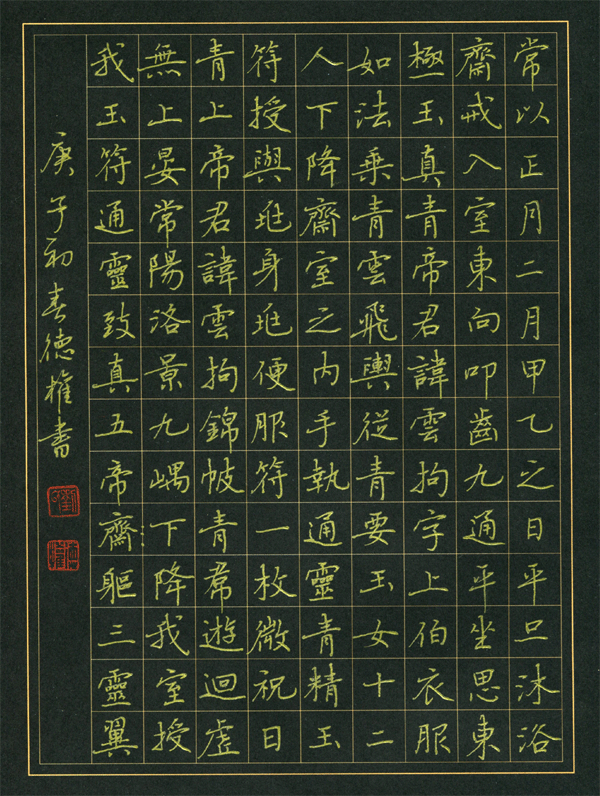 常以正月二月甲乙之日平旦沐浴
齋戒入室東向叩齒九通平坐思東
極玉真青帝君諱雲拘字上伯衣服
如法乘青雲飛輿從青要玉女十二
人下降齋室之内手執通靈青精玉
符授與兆身兆便服符一枚微祝曰
青上帝君諱雲拘錦帔青帬遊迴虛
無上晏常陽洛景九嵎下降我室授
我玉符通靈致真五帝齋軀三靈翼
庚子初春德權書